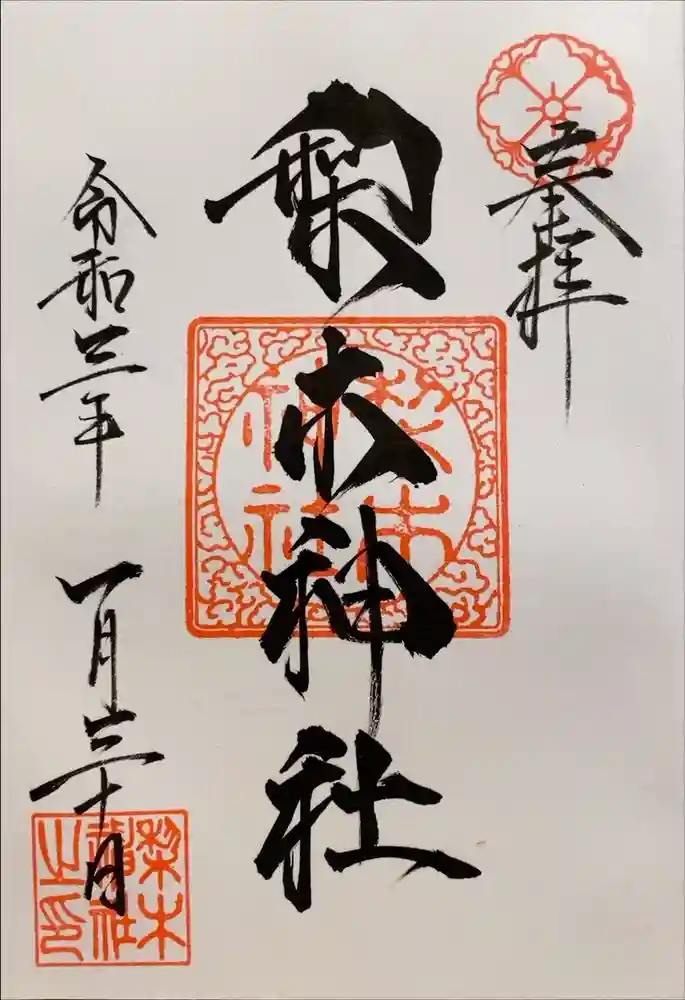 奉拝
梨木神社
令和三年 一月三十日
梨木
神社
梨木
神社
之印